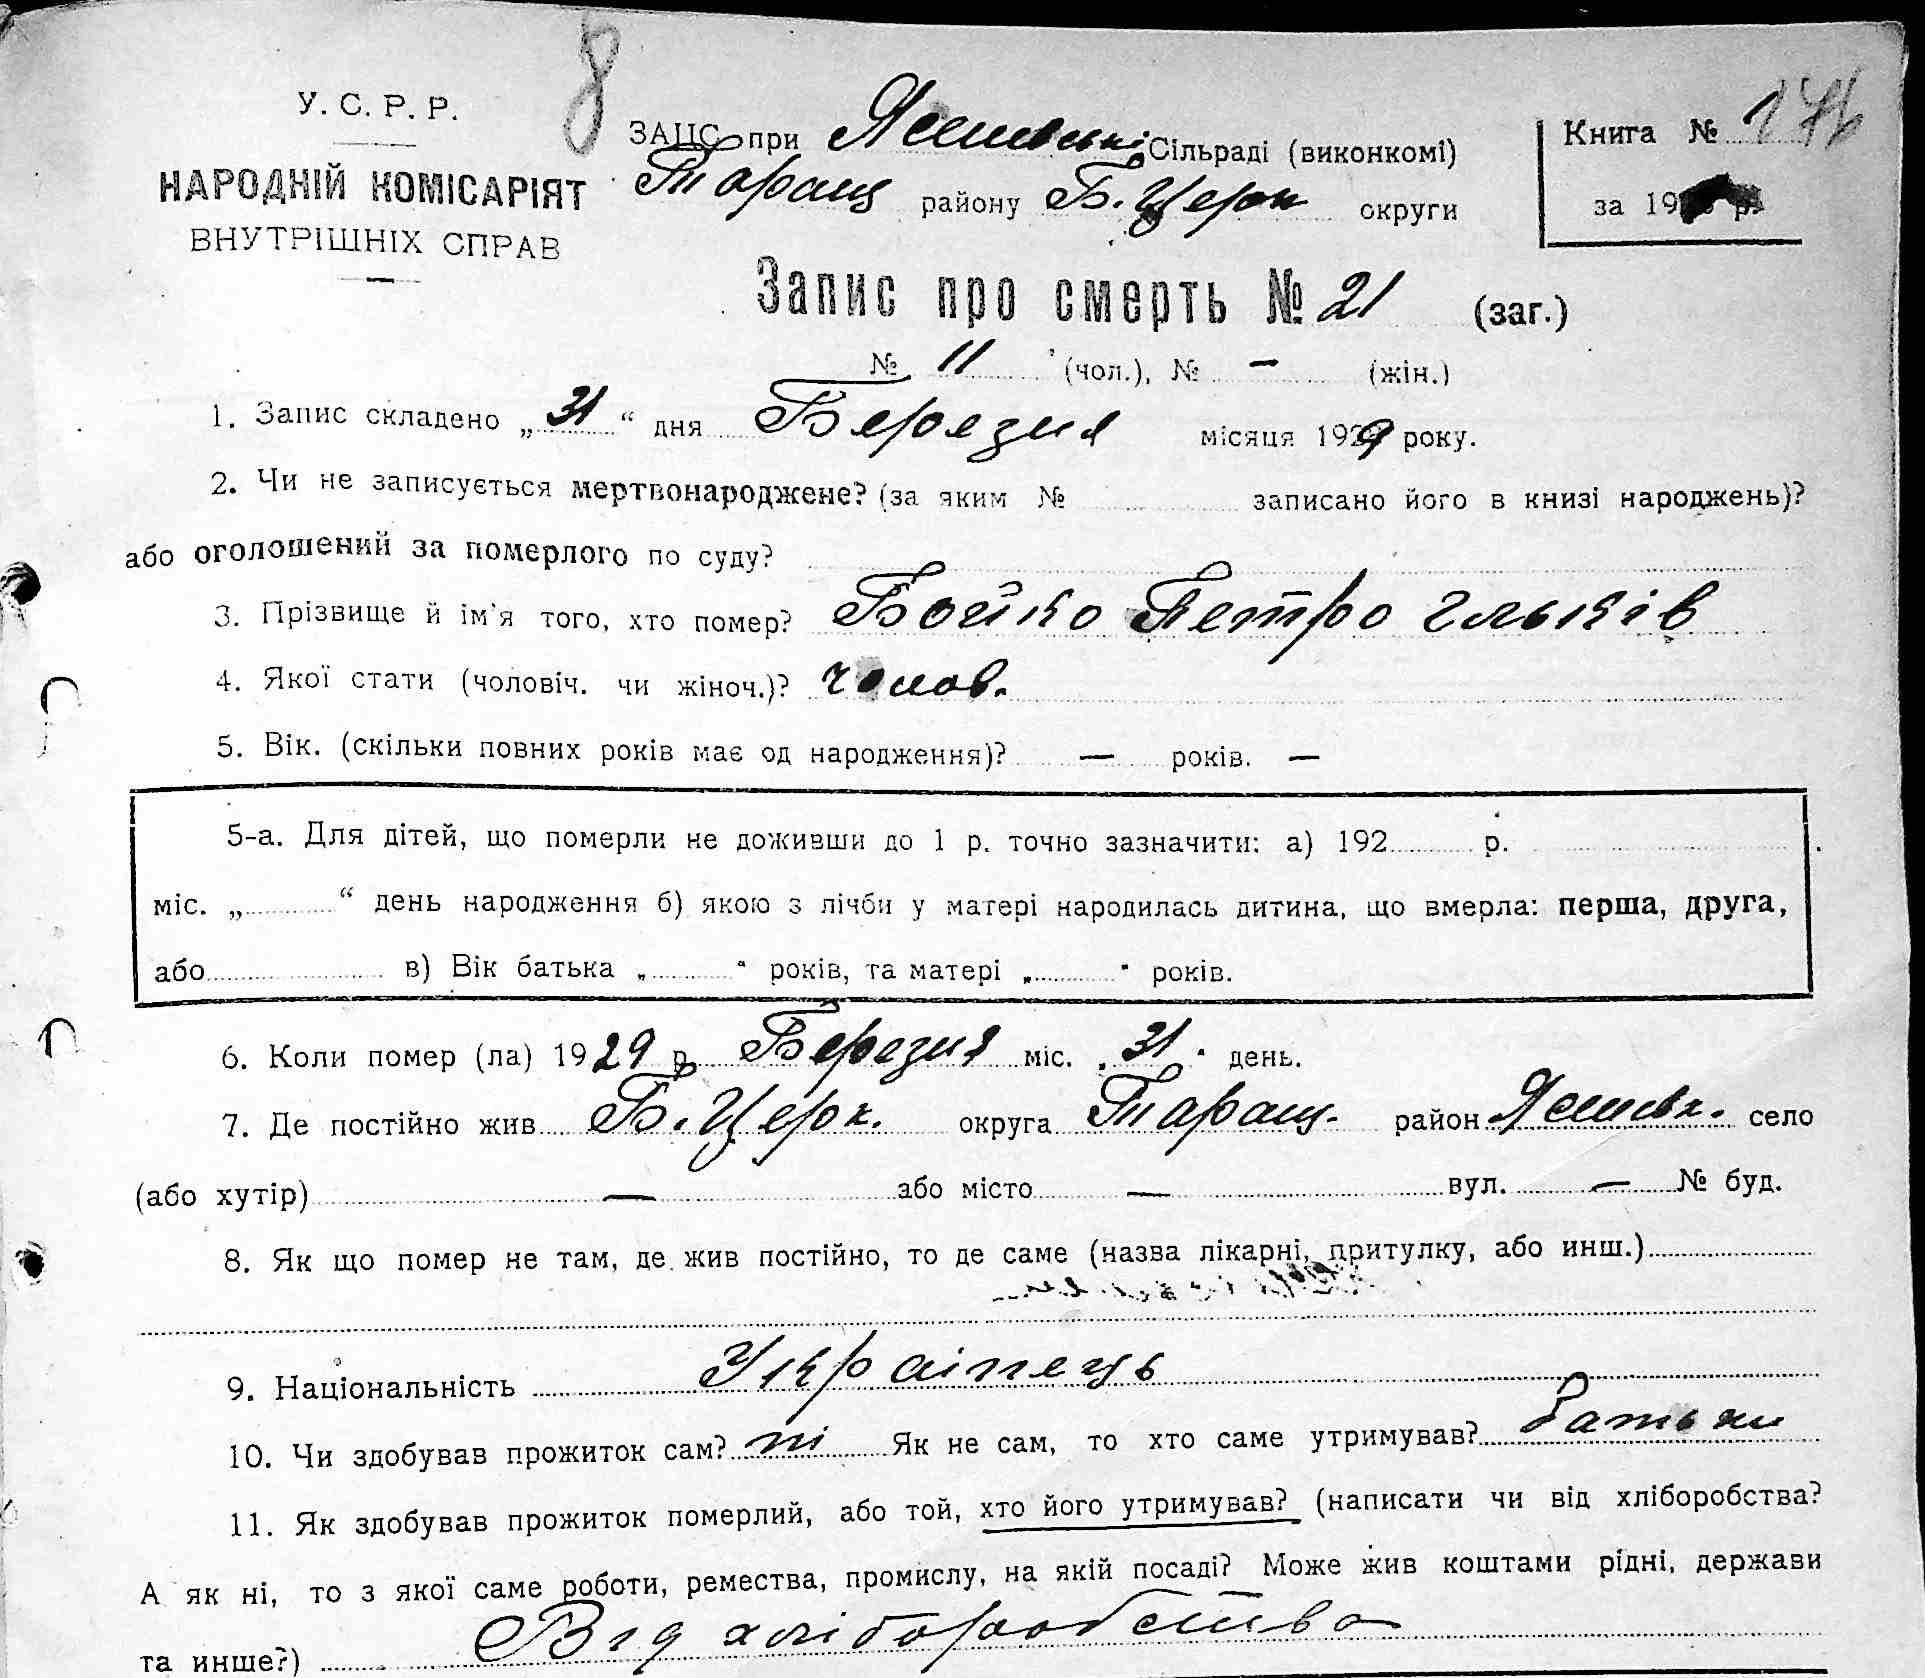 8
У. С. Р. Р.
НАРОДНІЙ КОМІСАРІЯТ
ВНУТРІШНІХ СПРАВ
ЗАЦС при Сільраді (виконкомі)
Таращ району Б. Церк округи
Книга № 1
за 19 р.
Запис про смерть № 21 (заг.)
№ 11 (чол.), № — (жін.)
1. Запис складено „31“ дня Березня місяця 1929 року.
2. Чи не записується мертвонароджене? (за яким № записано його в книзі народжень)?
або оголошений за померлого по суду?
3. Прізвище й ім'я того, хто помер? Бойко Петро Ільків
4. Якої стати (чоловіч. чи жіноч.)? чолов.
5. Вік. (скільки повних років має од народження)? — років. —
5-а. Для дітей, що померли не доживши до 1 р. точно зазначити: а) 192 р.
міс. „ “ день народження б) якою з лічби у матері народилась дитина, що вмерла: перша, друга,
або в) Вік батька „ “ років, та матері „ “ років.
6. Коли помер (ла) 1929 р. Березня міс. „31“ день.
7. Де постійно жив Б. Церк. округа Таращ. район село
(або хутір) — або місто — вул. — № буд.
8. Як що помер не там, де жив постійно, то де саме (назва лікарні, притулку, або инш.)
9. Національність Українець
10. Чи здобував прожиток сам? ні Як не сам, то хто саме утримував? батьки
11. Як здобував прожиток померлий, або той, хто його утримував? (написати чи від хліборобства?
А як ні, то з якої саме роботи, ремества, промислу, на якій посаді? Може жив коштами рідні, держави
та инше?) Від хліборобства